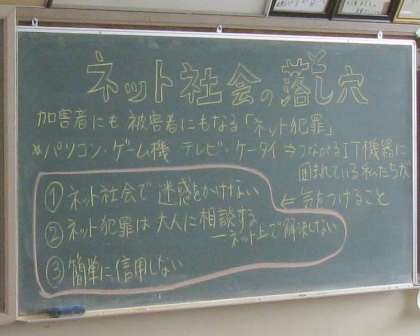 ネット社会の落とし穴
加害者にも被害者にもなる「ネット犯罪」
*パソコン・ゲーム機 テレビ・ケータイ ⇒つながるIT機器に
囲まれている私たちが
⇐気をつけること
①ネット社会で迷惑をかけない
②ネット犯罪は大人に相談する
―ネット上で解決しない
③簡単に信用しない